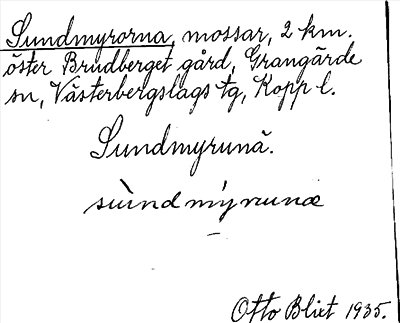 Sundmyrorna, mossar, 2 km.
öster Brudberget gård, Grangärde
sn, Västerbergslags tg, Kopp l.
Sundmyrunä.
sùndmýrunæ
Otto Blixt 1935.